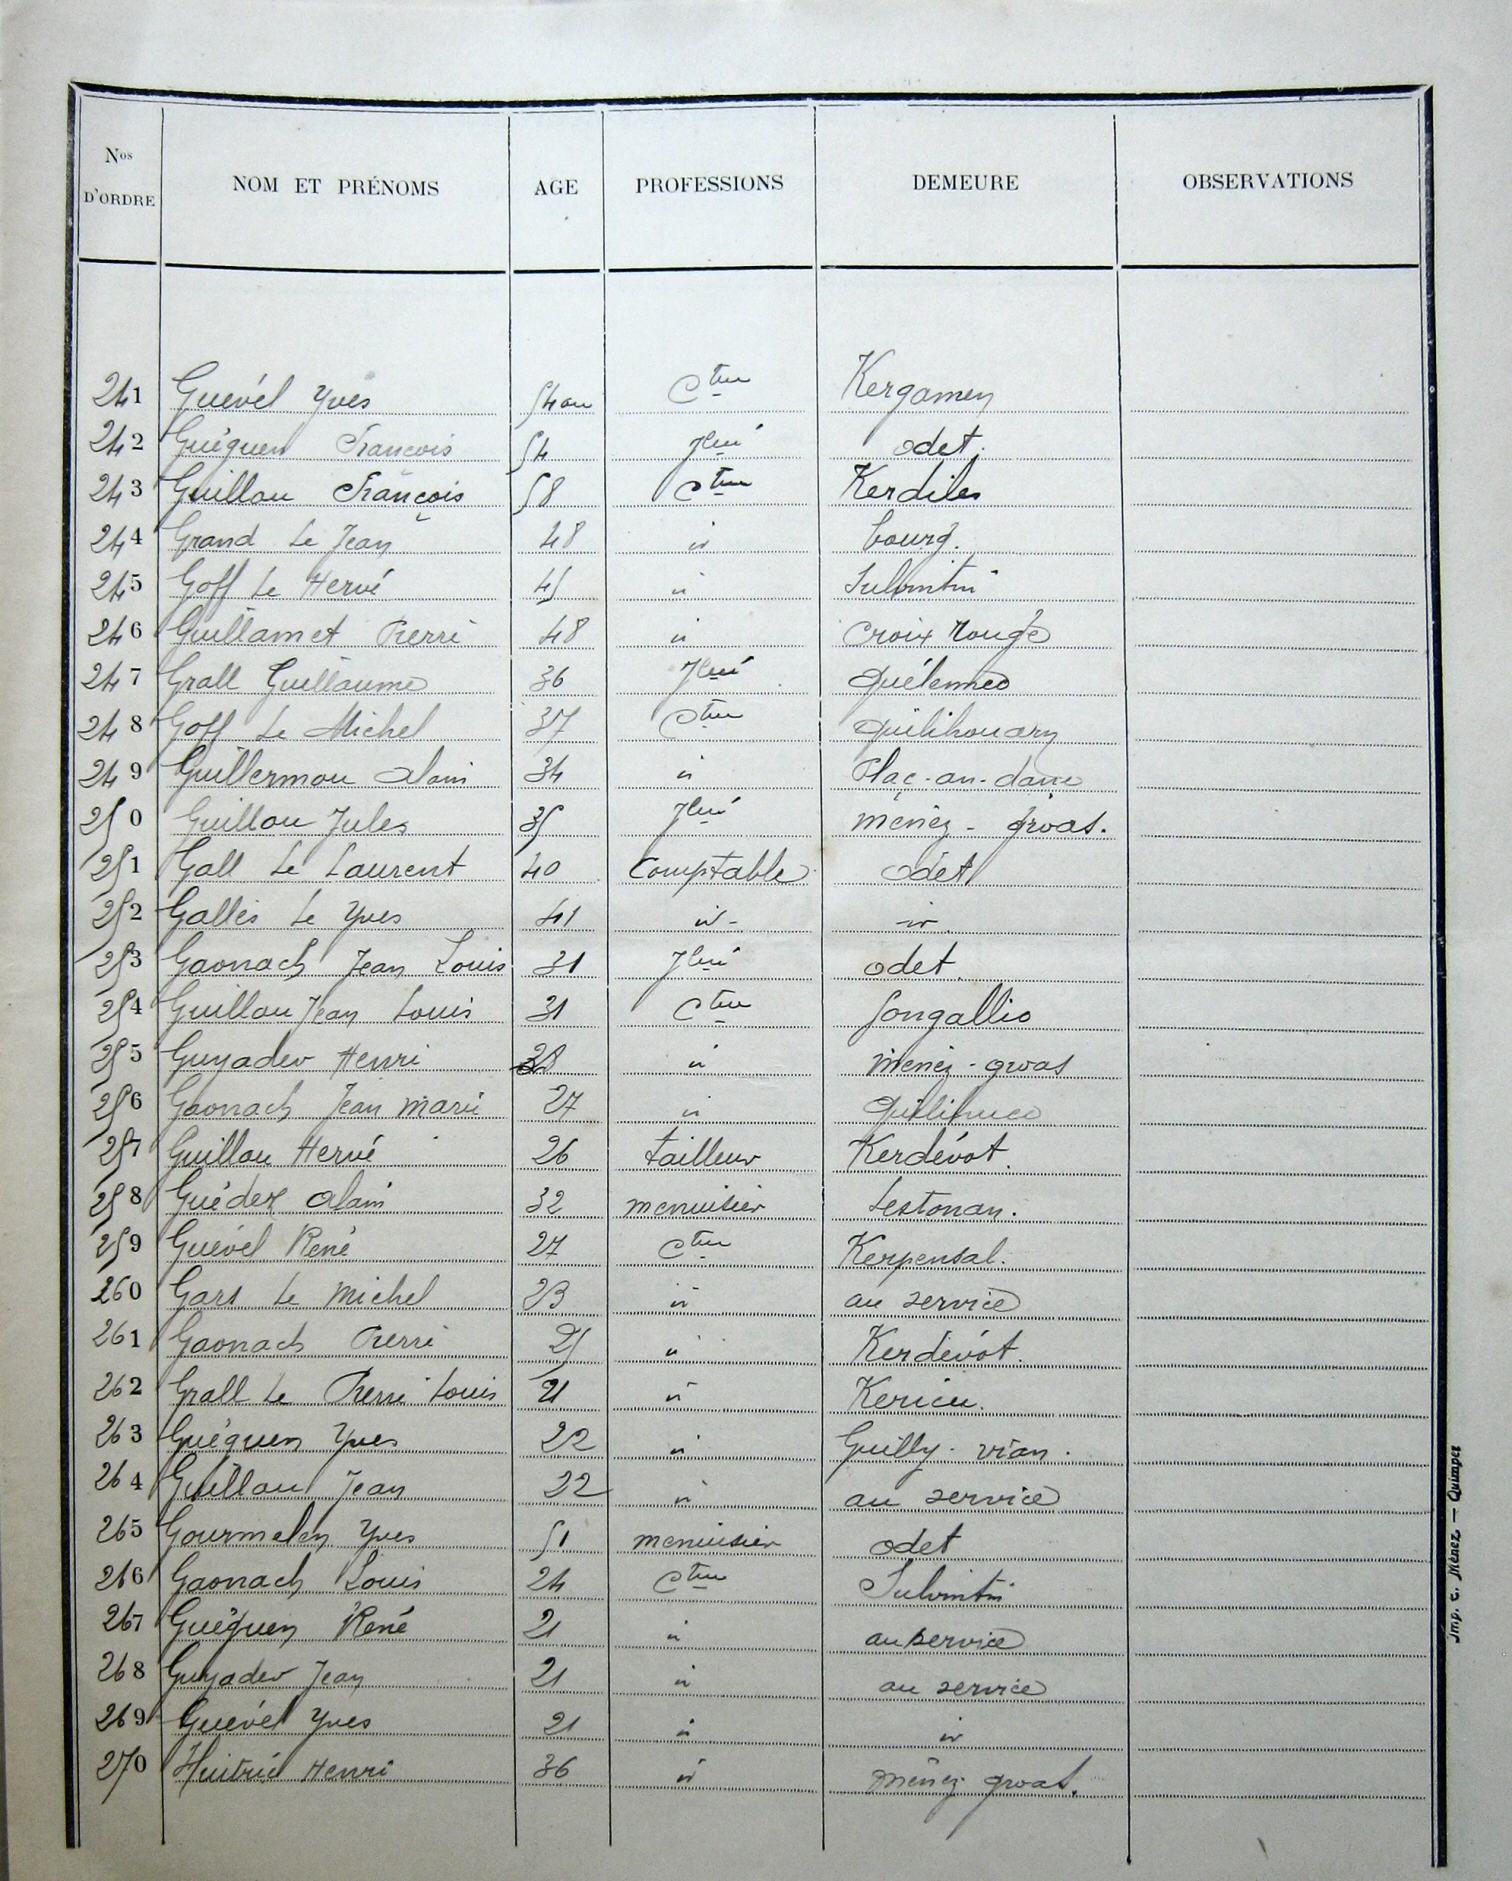 Nos D'ORDRE NOM ET PRÉNOMS AGE PROFESSIONS DEMEURE OBSERVATIONS
241 Guével Yves 54 an Cteur Kergamen
242 Guéguen François 54 Jlier odet.
243 Guillou François 58 Cteur Kerdiles
244 Grand Le Jean 48 id bourg.
245 Goff Le Hervé 45 id Sulvintin
246 Guillamet Pierre 48 id Croix Rouge
247 Grall Guillaume 36 Quélennec
248 Goff Le Michel 37 Cteur Quilihouarn
249 Guillermou Alain 34 id Plaç-an-dane
250 Guillou Jules 35 ménez-groas.
251 Gall Le Laurent 40 Comptable odet
252 Galles Le Yves 41 id- id
253 Gaonach Jean Louis 31 odet.
254 Guillou Jean Louis 31 Cteur Gongallic
255 Guyader Henri 28 id ménez-groas
256 Gaonach Jean Marie 27 id Quilihuec
257 Guillou Hervé 26 tailleur Kerdévot.
258 Guédez Alain 32 menuisier Lestonan.
259 Guével René 27 Cteur Kerpensal.
260 Gars Le Michel 23 id au service
261 Gaonach Pierre 25 id Kerdévot.
262 Grall Le Pierre Louis 21 id Kerieu.
263 Guéguen Yves 22 id Guilly-vian.
264 Guillou Jean 22 id au service
265 Gourmelen Yves 51 menuisier odet
266 Gaonach Louis 24 Cteur Sulvintin
267 Guéguen René 21 id au service
268 Guyader Jean 21 id au service
269 Guével Yves 21 id id
270 Huitric Henri 36 id ménez groas.
Imp. C. Ménez — Quimper